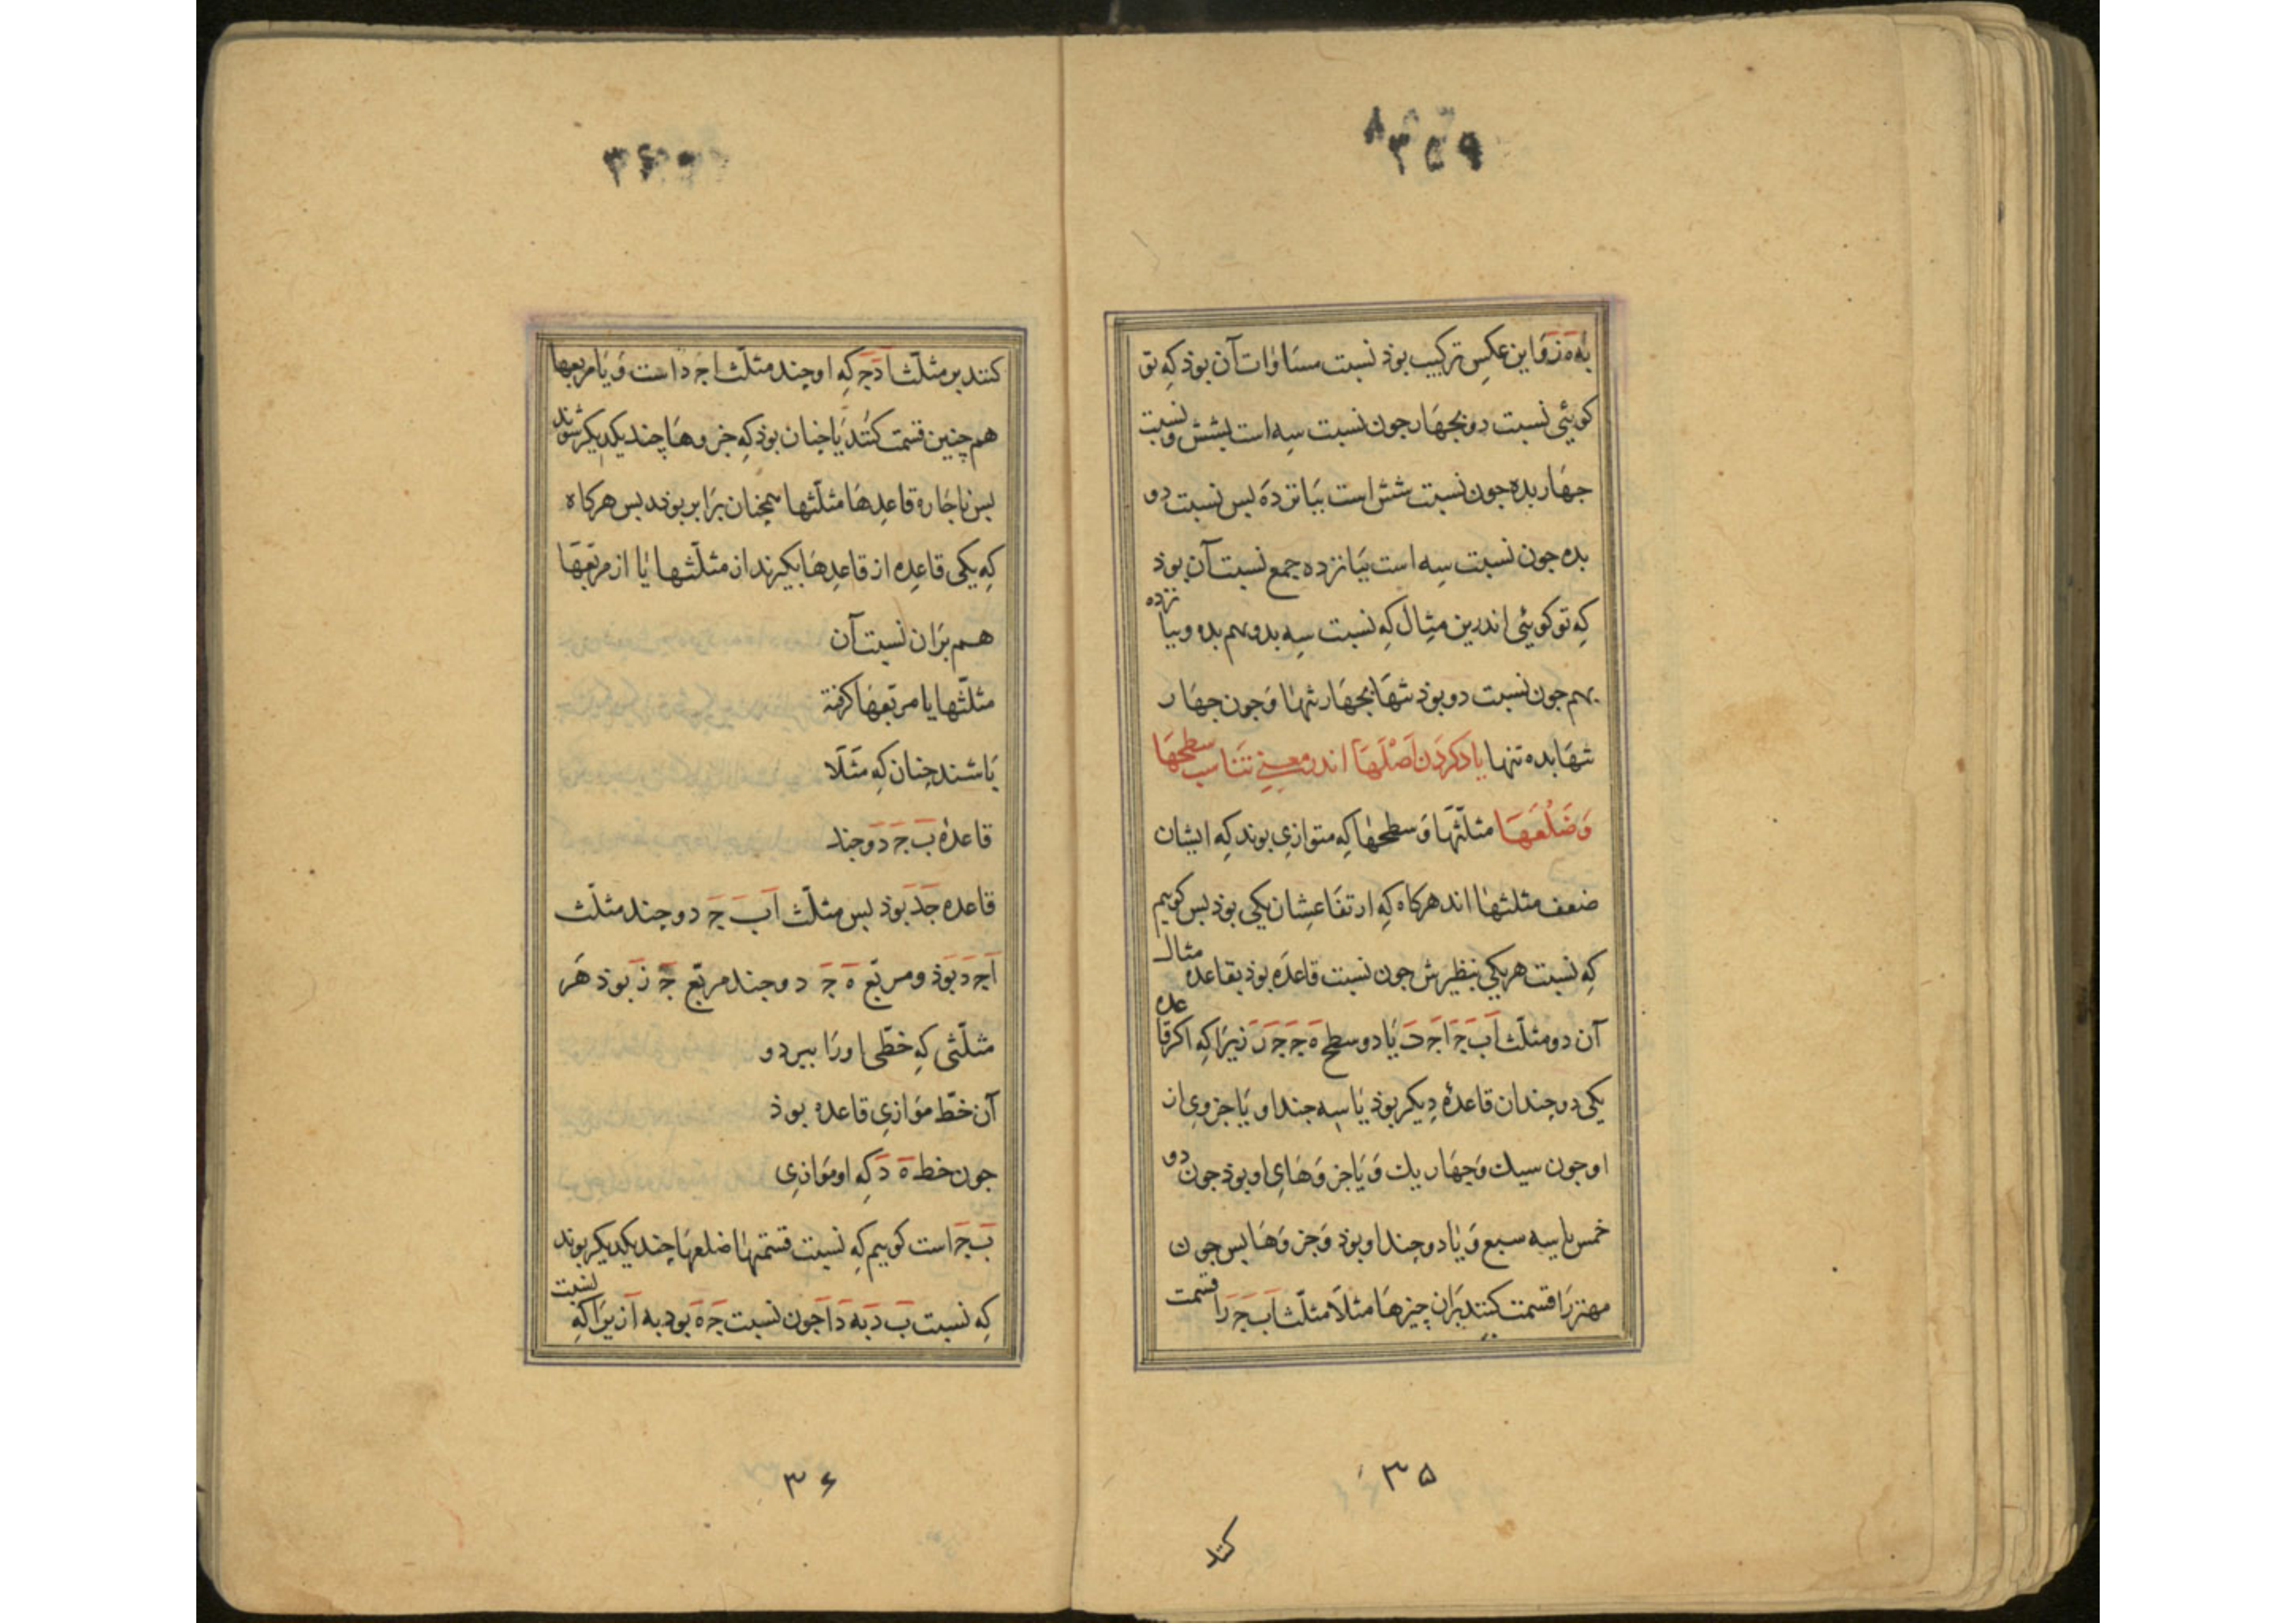 ۳۵۹
۸
به ه ز وَاین عکسِ ترکیب بوذ نسبت مسَاوات آن بوذ کِه تو
کویئی نسبت دو بجهَار جون نسبت سِه است بشش و نسبت
جهَار بده جون نسبت شش است بپَانزدَه بس نسبت دو
بده جون نسبت سِه است بپَانزده جمع نسبت آن بوذ
کِه تو کویئی اندرین مثِال کِه نسبت سِه بدو بهم بده وبپانزده
بهم جون نسبت دو بوذ تنهَا بجهَار تنهَا وَجون جهَار
تنهَا بده تنها یادکَردَن اَصْلَهَا اندر معنیِ تَنَاسب سطحهَا
وَضَلْعَهَا مثلّثهَا وَسطحهَا کِه متوازیِ بوند که ایشان
ضعف مثلثهَا اند هرکاه کِه ارتفَاعِشان یکی بوذ بس کوییم
کِه نسبت هر یکی بنظیرش جون نسبت قاعدَه بوذ بقاعده مثال
آن دو مثلّث اَ بَ جَ اَ جَ دَ یَا دو سطح هَ جَ جَ زَ زیرَا کِه اکر قاعده
یکی دو جندان قاعدهٔ دِیکر بوذ یَا سِه جند او یَا جزوی از
او جون سیك وَجهَار یك وَیَا جزوَهَایِ او بوذ جون دو
خمس یا سِه سبع وَیَا دو جند او بوذ وَجزوَهَا بس جون
مهتر رَا قسمت کنند برَان چیزهَا مثلَا مثلّث اَ بَ جَ رَا قسمت
۳۵
کنند
۳۶۰
کنند بر مثلّث اَ دَ جَ کِه او جند مثلّث ا جَ د است وَیَا مربعها
هم چنین قسمت کنُند یَا جنان بوذ کِه جزوهَا چند یکدیکر شوند
بس ناجَاره قاعدِهَا مثلّثها همچنان برَابر بوند بس هرکاه
کِه یکی قاعِده از قاعدِهَا بکیرند از مثلّثها یَا از مربّعهَا
همـ برَان نسبت آن
مثلّثها یا مربّعهَا کرفته
بَاشند جنان کِه مثَلَا
قاعدهٔ بَ جَ دَ و جند
قاعده جَ دَ بوَذ بس مثلّث اَ بَ جَ دو جند مثلّث
اَ جَ دَ بوَذ ومربّع هَ جَ دو جند مربّع جَ زَ بوذ هَر
مثلّثی کِه خطّی اورَا ببرد و
آن خطّ موَازیِ قاعده بوذ
جون خط هَ دَ کِه او موَازیِ
بَ جَ است کوییم کِه نسبت قسمتهَا ضلعهَا چند یکدیکر بوند
کِه نسبت بَ دَ به دَ اَ جون نسبت جَ هَ بود به ا زیرَا که نسبت
۳۶